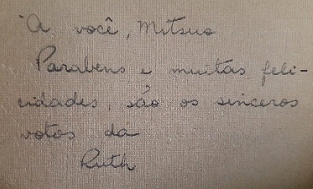 "A você, Mitsuo
Parabens e muitas feli-
cidades, são os sinceros
votos da
Ruth